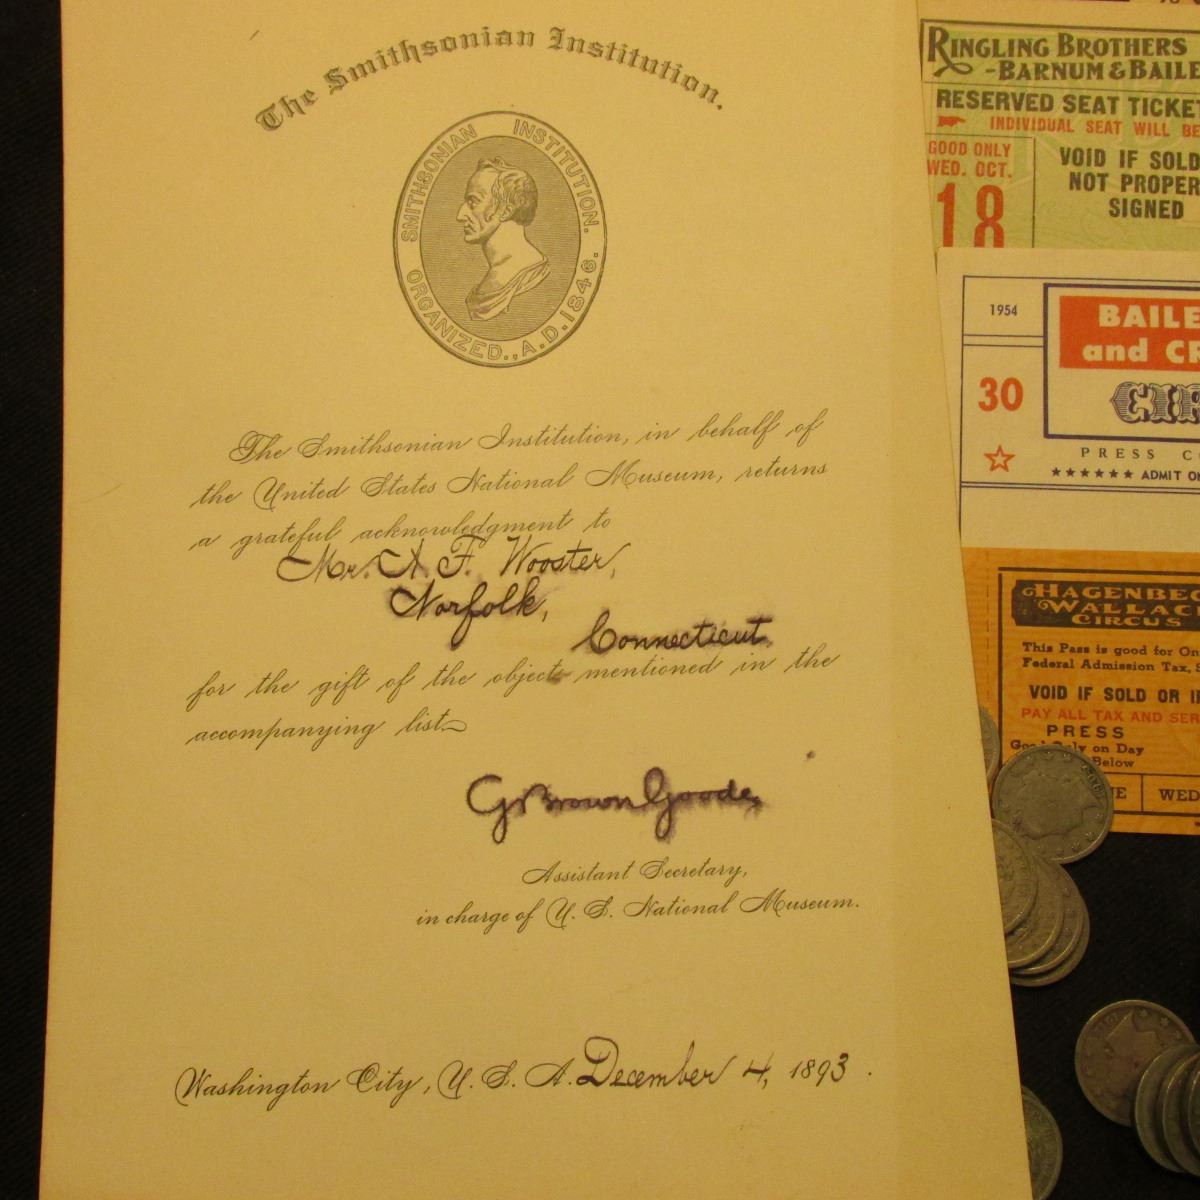 The Smithsonian Institution.
SMITHSONIAN INSTITUTION.
ORGANIZED., A.D. 1846.
The Smithsonian Institution, in behalf of
the United States National Museum, returns
a grateful acknowledgment to
Mr. A. F. Wooster,
Norfolk,
Connecticut.
for the gift of the objects mentioned in the
accompanying list
G Brown Goode,
Assistant Secretary,
in charge of U. S. National Museum.
Washington City, U. S. A. December 4, 1893.
RINGLING BROTHERS
-BARNUM & BAILE
RESERVED SEAT TICKET
INDIVIDUAL SEAT WILL BE
GOOD ONLY
WED. OCT.
18
VOID IF SOLD
NOT PROPER
SIGNED
1954
30
BAILE
and CR
CIR
PRESS CO
★★★★★★ ADMIT ON
HAGENBEC
WALLAC
CIRCUS
This Pass is good for On
Federal Admission Tax, S
VOID IF SOLD OR IF
PAY ALL TAX AND SER
PRESS
Good Only on Day
Below
NE
WED